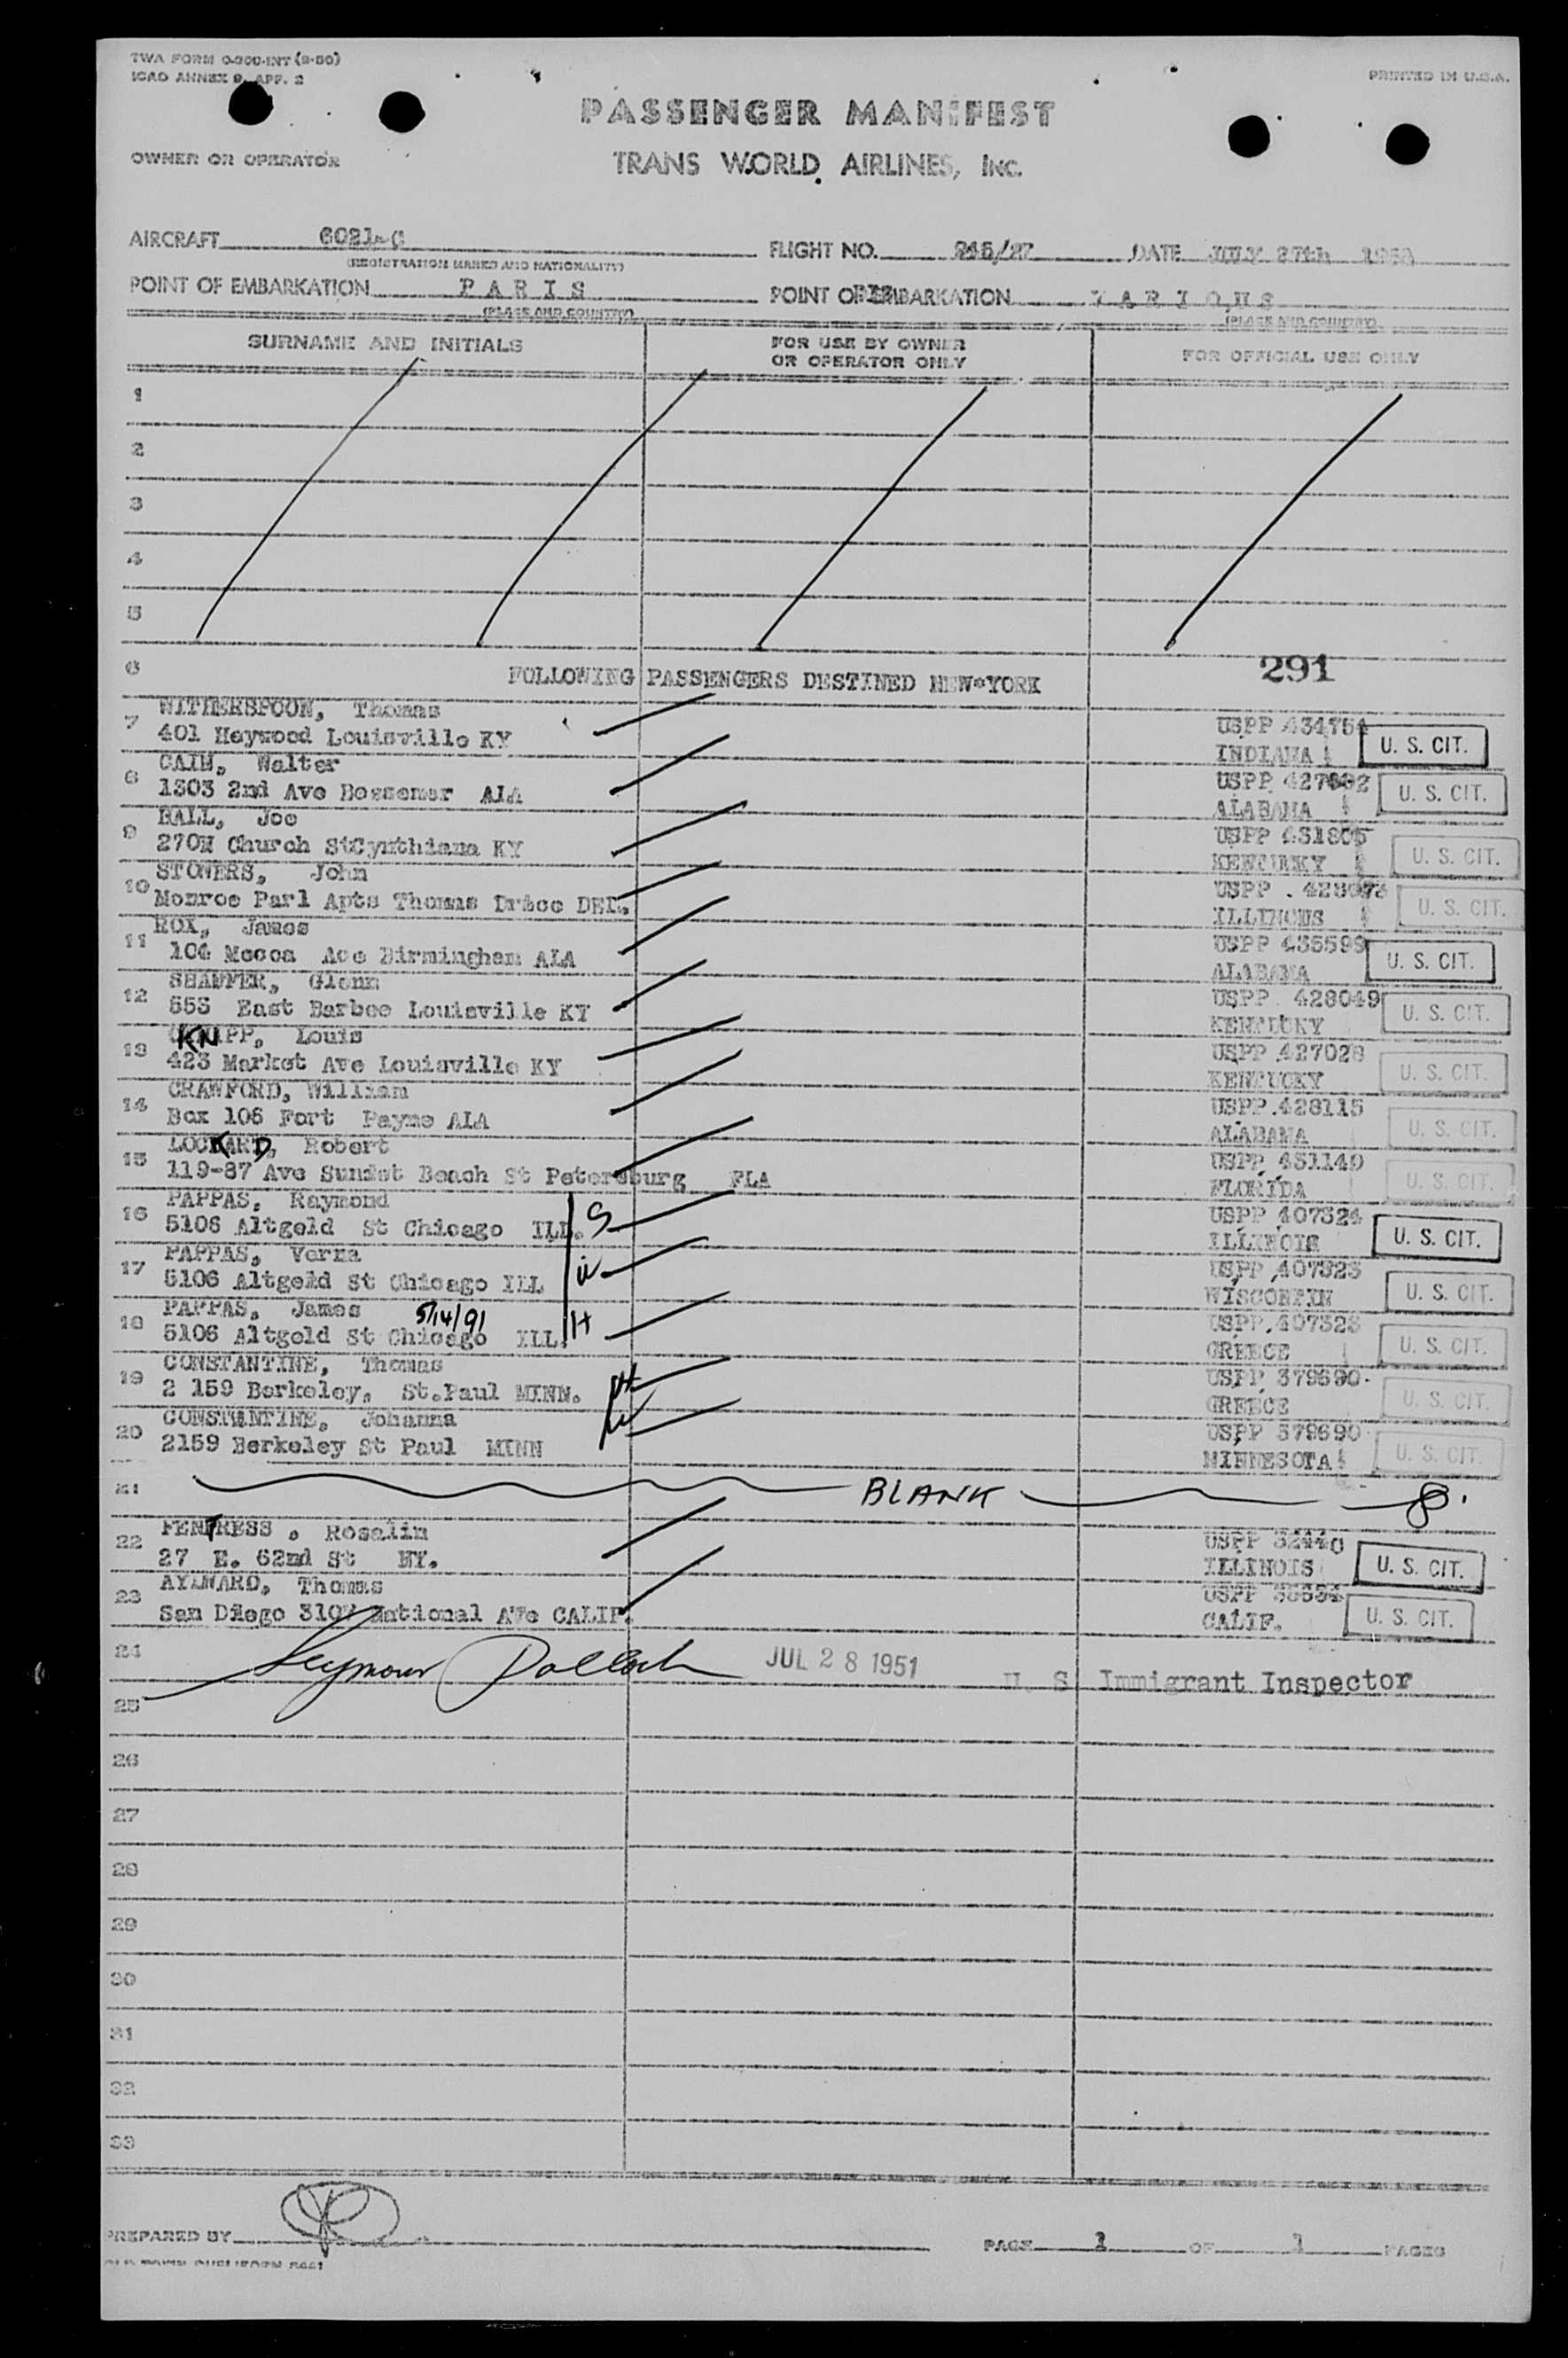 TWA FORM O-300-INT (2-50)
ICAO ANNEX 9, APP. 2
PRINTED IN U.S.A.
PASSENGER MANIFEST
OWNER OR OPERATOR
TRANS WORLD AIRLINES, INC.
AIRCRAFT 6021-C
FLIGHT NO. DATE JULY 27th
(REGISTRATION MARKS AND NATIONALITY)
POINT OF EMBARKATION PARIS
POINT OF DISEMBARKATION VARIOUS
(PLACE AND COUNTRY) (PLACE AND COUNTRY)
SURNAME AND INITIALS
FOR USE BY OWNER
OR OPERATOR ONLY
FOR OFFICIAL USE ONLY
1
2
3
4
5
6 FOLLOWING PASSENGERS DESTINED NEW*YORK 291
7 WITHERSPOON, Thomas USPP 434754
401 Heywood Louisville KY INDIANA U. S. CIT.
8 CAIN, Walter USPP
1303 2nd Ave Bessemer ALA ALABAMA U. S. CIT.
9 BALL, Joe USPP 431805
270N Church StCynthiana KY KENTUKKY U. S. CIT.
10 STOWERS, John USPP
Monroe Parl Apts Thomas DEL. ILLINOUS U. S. CIT.
11 ROX, James USPP 436599
104 Mecca Ace Birmingham ALA ALABAMA U. S. CIT.
12 SHAFFER, Glenn USPP 428049
553 East Barbee Louisville KY KENTUCKY U. S. CIT.
13 KNAPP, Louis USPP 427028
423 Market Ave Louisville KY KENTUCKY U. S. CIT.
14 CRAWFORD, William USPP 428115
Box 106 Fort Payne ALA ALABAMA U. S. CIT.
15 LOCKARD, Robert USPP 431149
119-87 Ave Sunset Beach St Petersburg FLA FLORIDA U. S. CIT.
16 PAPPAS, Raymond USPP 407324
5106 Altgeld St Chicago ILL. S ILLINOIS U. S. CIT.
17 PAPPAS, Verna USPP 407323
5106 Altgeld St Chicago ILL W WISCONFIN U. S. CIT.
18 PAPPAS, James 5/14/91 USPP 407323
5106 Altgeld St Chicago ILL. H GREECE U. S. CIT.
19 CONSTANTINE, Thomas USPP 379690
2 159 Berkeley, St.Paul MINN. H GREECE U. S. CIT.
20 CONSTANTINE, Johanna USPP 379690
2159 Berkeley St Paul MINN W MINNESOTA U. S. CIT.
21 BLANK
22 FENTRESS, Rosalin USPP 32440
27 E. 62nd St NY. ILLINOIS U. S. CIT.
23 AYLWARD, Thomas USPP
San Diego National AVe CALIF. CALIF. U. S. CIT.
24 Seymour Pollack JUL 28 1951 U. S. Immigrant Inspector
25
26
27
28
29
30
31
32
33
PREPARED BY PAGE 1 OF 1 PAGES